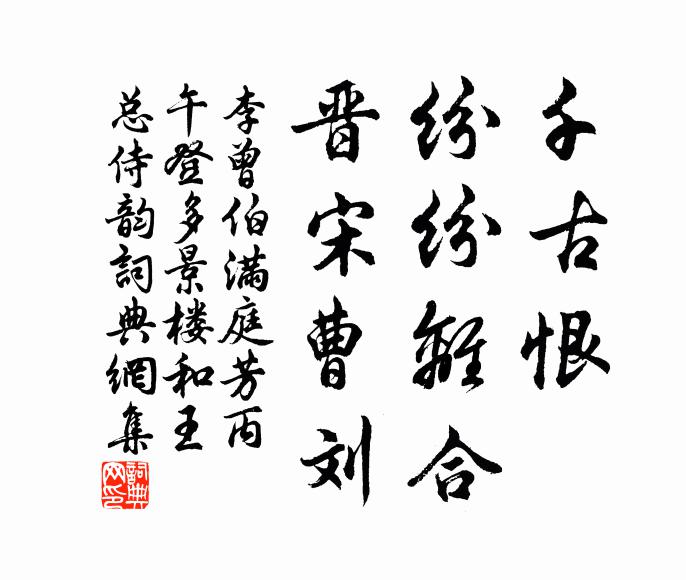 千古恨
纷纷離合
晋宋曹刘
李曾伯满庭芳丙
午登多景楼和王
总侍韵詞典網集
詞典
网印